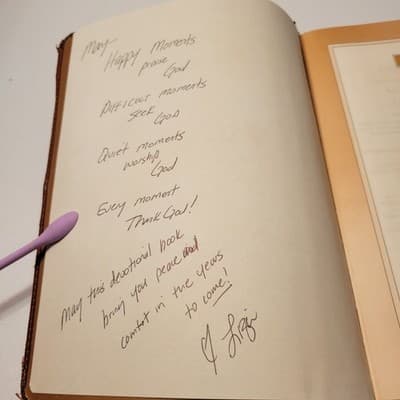 May
Happy Moments
praise
God
Difficult moments
seek
God
Quiet moments
worship
God
Every moment
Thank God!
May this devotional book
bring you peace and
comfort in the years
to come!